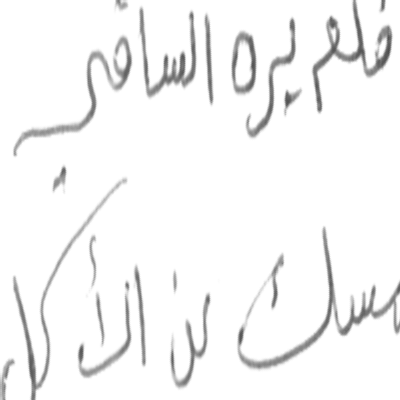 فلم يره الساقي
مسك عن الأكل